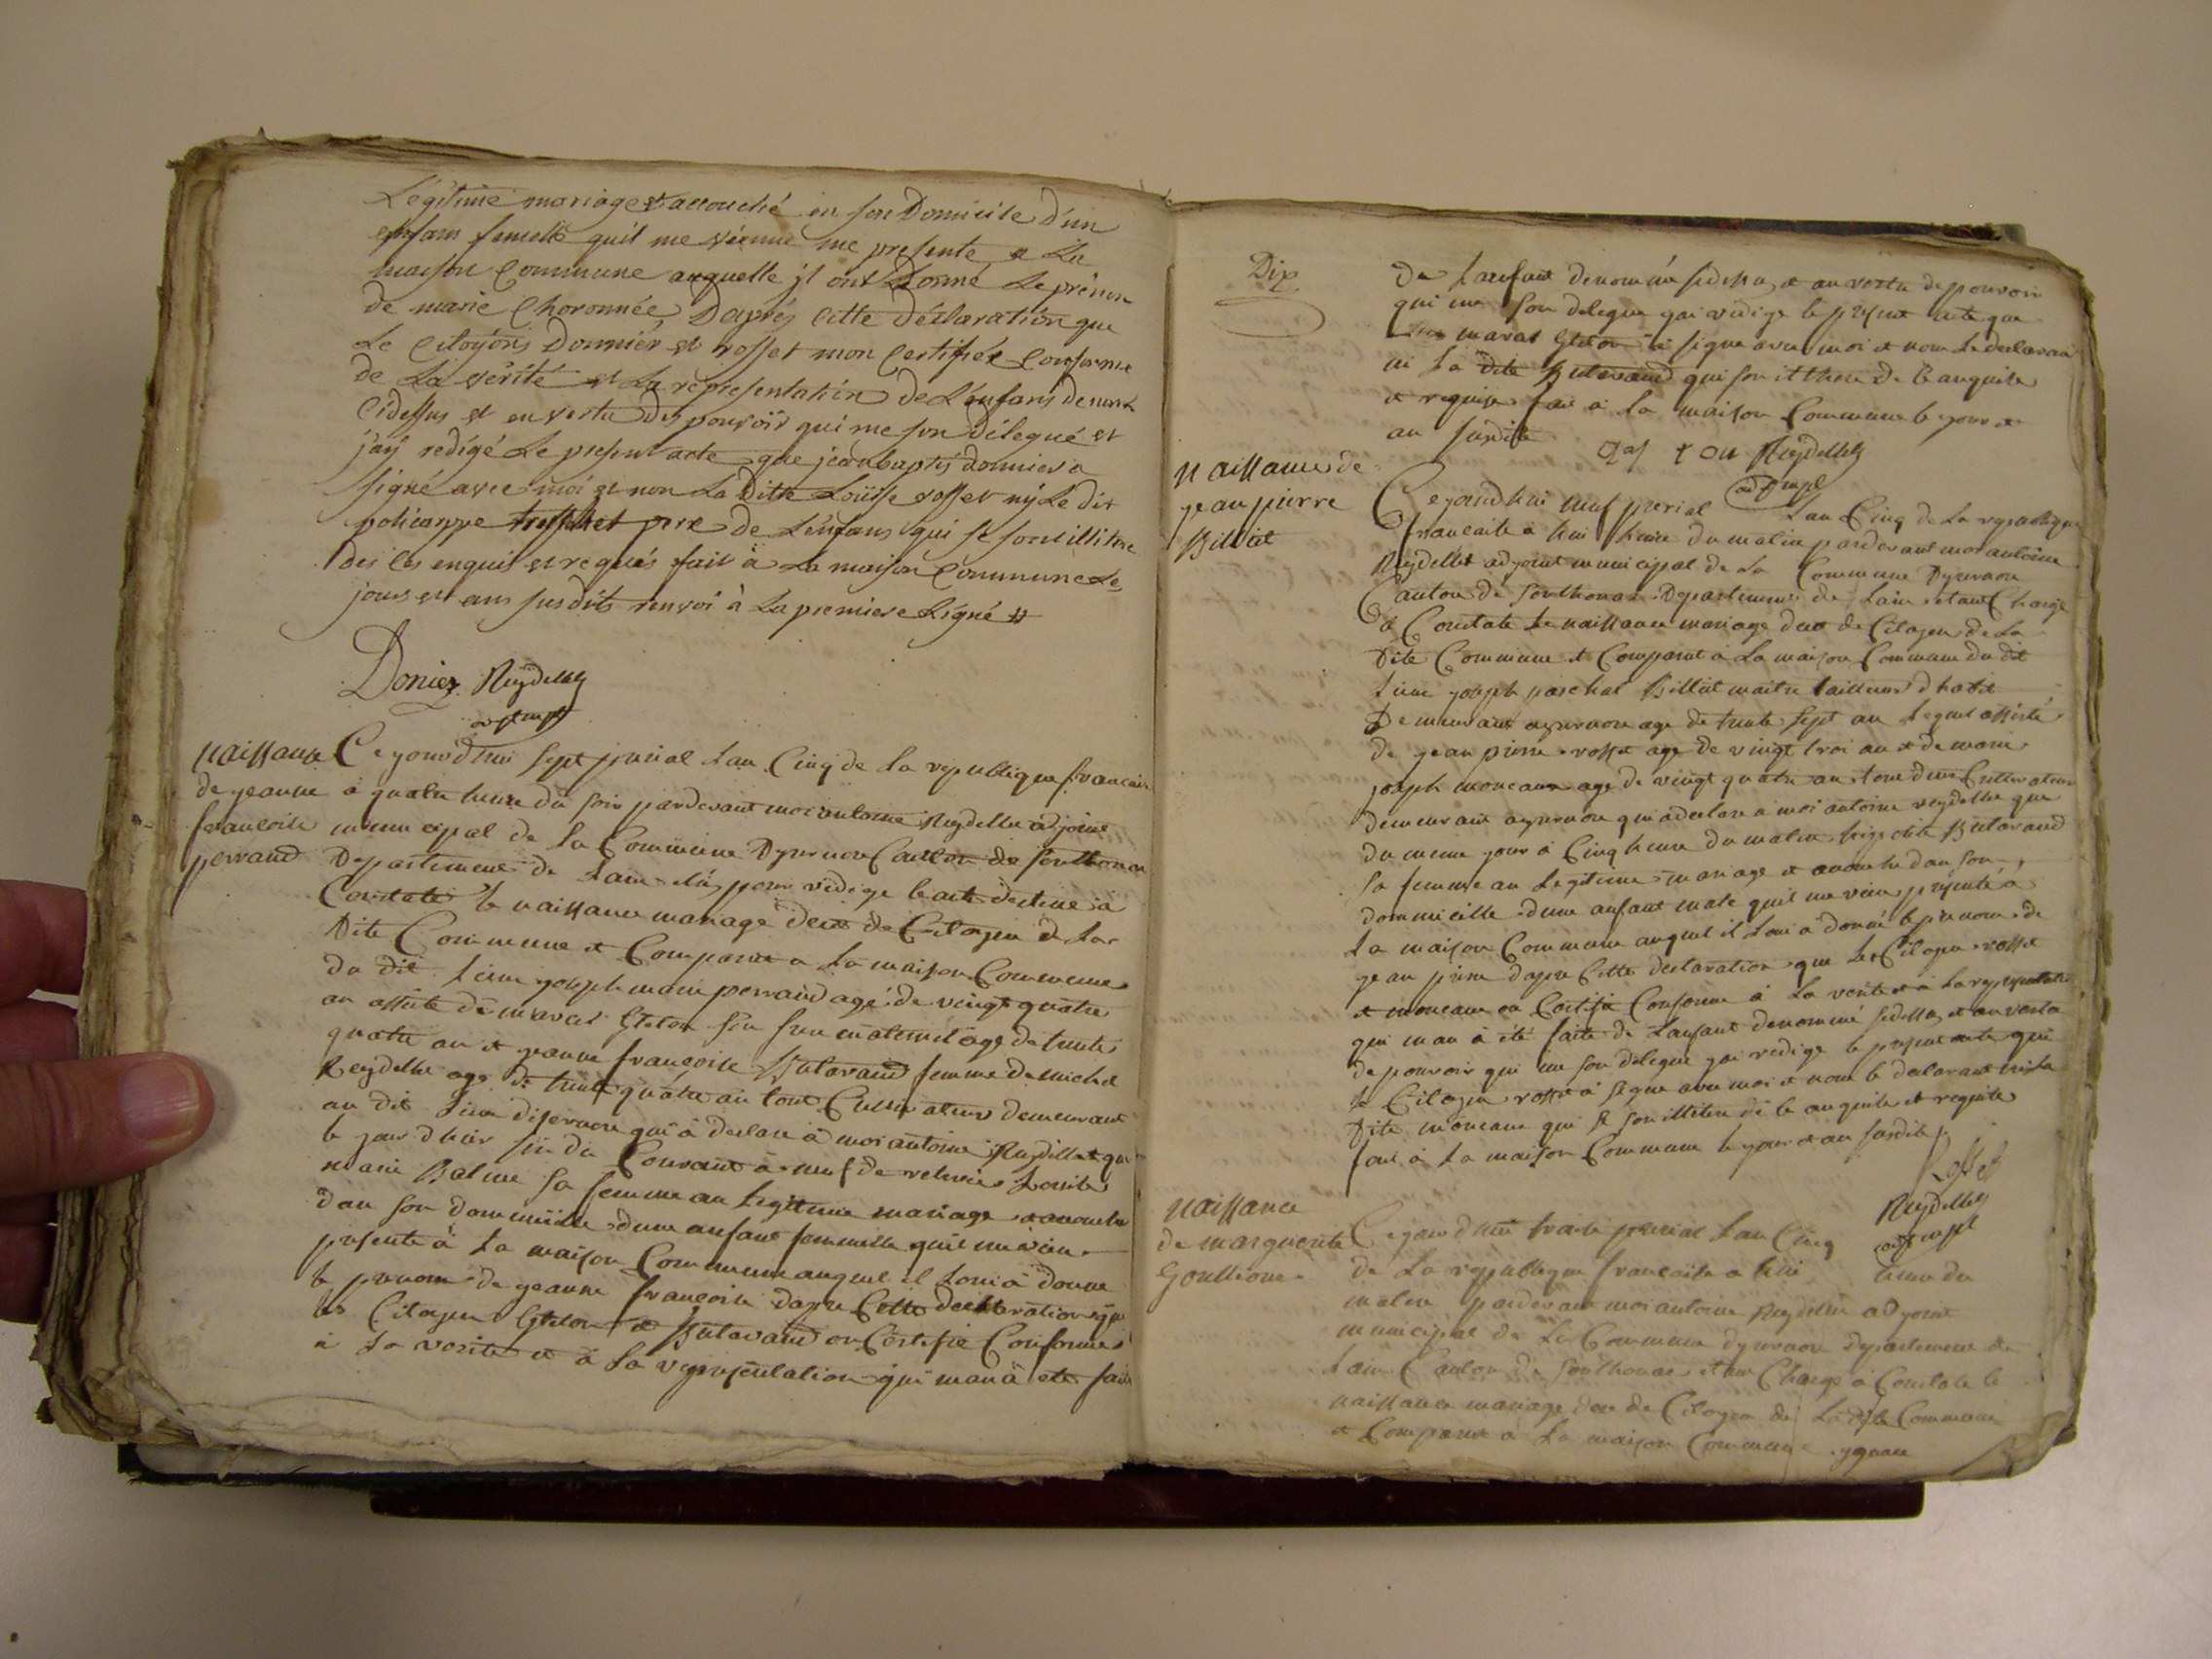 Légitime mariage et accouché en son Domicile d'un
enfans femelle quil me viennie me presente a La
maison Commune auquelle jl ont Donné Le prénon
de marie Choronnée, Daprés cette Déclaration que
Le Citoyons Donnier et rosset mon Certifiée Conforme
de La vérité et La representation de L'enfans denomé
Cidessus et en vertu Des pouvoir qui me son Délegué et
j'aÿ redigé Le present acte que jeanbaptis donnier a
signé avec moi et non La Ditte Loüise rosset nÿ Le Dit
policarppe pere de L'enfans qui se sont illitre
des Les enquis et requis fait à La maison Commune Le
jours et ans susdits renvoi à La premiere Ligne #
Donier Reydellet
adjt mpl
Naissance
de jeanne
francoise
perraud
Ce jourdhui sept prerial Lan Cinq de La republique francaise
a quatre heure du soir pardevant moi antoine Reydellet adjoint
municipal de La Commune Dysernore Canton de Sonthonax
Departement de Lain élu pour redige le acte destine à
Constate le naissance mariage deces de Citoyen de La
Dite Commune et Comparut a La maison Commune
du dit Lieu joseph marie perraud agé de veingt quatre
an assisté de marat Gleton age de trente
quatre an et jeanne francoise Butavand femme de michel
Reydellet age de trente quatre an tout Cultivateur demeurant
au dit Lieu disernore qui à declare à moi antoine Reydellet que
le jour dhier six du Courant à neuf de
marie Balme sa femme an legitime mariage et acouche
dan son dommicille dune anfant femmelle quil me vien
presente à La maison Commune auquel il Loui à donne
le prenom de jeanne francoise dapre Cette declaration que
les Citoyen Gleton et Butavand on Certifie Conforme
à La verite et à La representation qui man à ete faite
Dix
De Lanfant denommé sidessu, et an vertu de pouvoir
qui me son delegue jai redige le present acte que
marat Gleton à signe avec moi et nom le declarant
ni La dite Butavand qui son illitere de le anquite
et requise fai à La maison Commune le jour et
an susdite
Reydellet
adjt mpl
Naissance de
jean pierre
Billiat
Ce jourdhui neuf prerial Lan Cinq de La republique
francaise a hui heure du matin pardevant moi antoine
Reydellet adjoint municipal de La Commune Dysernore
Canton de Sonthonax Departement de Lain etant Charge
à Constate le naissance mariage deces de Citoyen de La
Dite Commune et Comparut à La maison Commune du dit
Lieu joseph paschal Billiat maitre tailleur dhabit
Demeurant aysernore age de trente sept an lequel assisté
de jean pierre rosset age de vingt troi an et de marie
joseph moncaure age de vingt quatre an tous deux Cultivateur
demeurant aysernore qui a declare à moi antoine reydellet que
du meme jour à Cinq heure du matin Butavand
sa femme an Legitime mariage et acouche dan son
dommicille dune anfant male quil me vien presente à
La maison Commune auquel il Loui à donné le prenom de
jean pierre dapre Cette declaration que le Citoyen rosset
et moncaure on Certifie Conforme à La verite et à La representation
qui man à été faite de Lanfant denommé sidessu, et an vertu
de pouvoir qui me son delegue jai redige le present acte que
le Citoyen rosset à signe avec moi et nom le declarant ni La
Dite moncaure qui se son illitere de le anquite et requite
fait à La maison Commune le jour et an susdite
Rosset
Reydellet
adjt mpl
Naissance
de marguerite
Goultione
Ce jourdhui trante prerial Lan Cinq
de La republique francaise a hui heure du
matin pardevant moi antoine Reydellet adjoint
municipal de La Commune dysernore departement de
Lain Canton de Sonthonax etan Charge à Constate le
naissance mariage deces de Citoyen de La dite Commune
et Comparut à La maison Commune